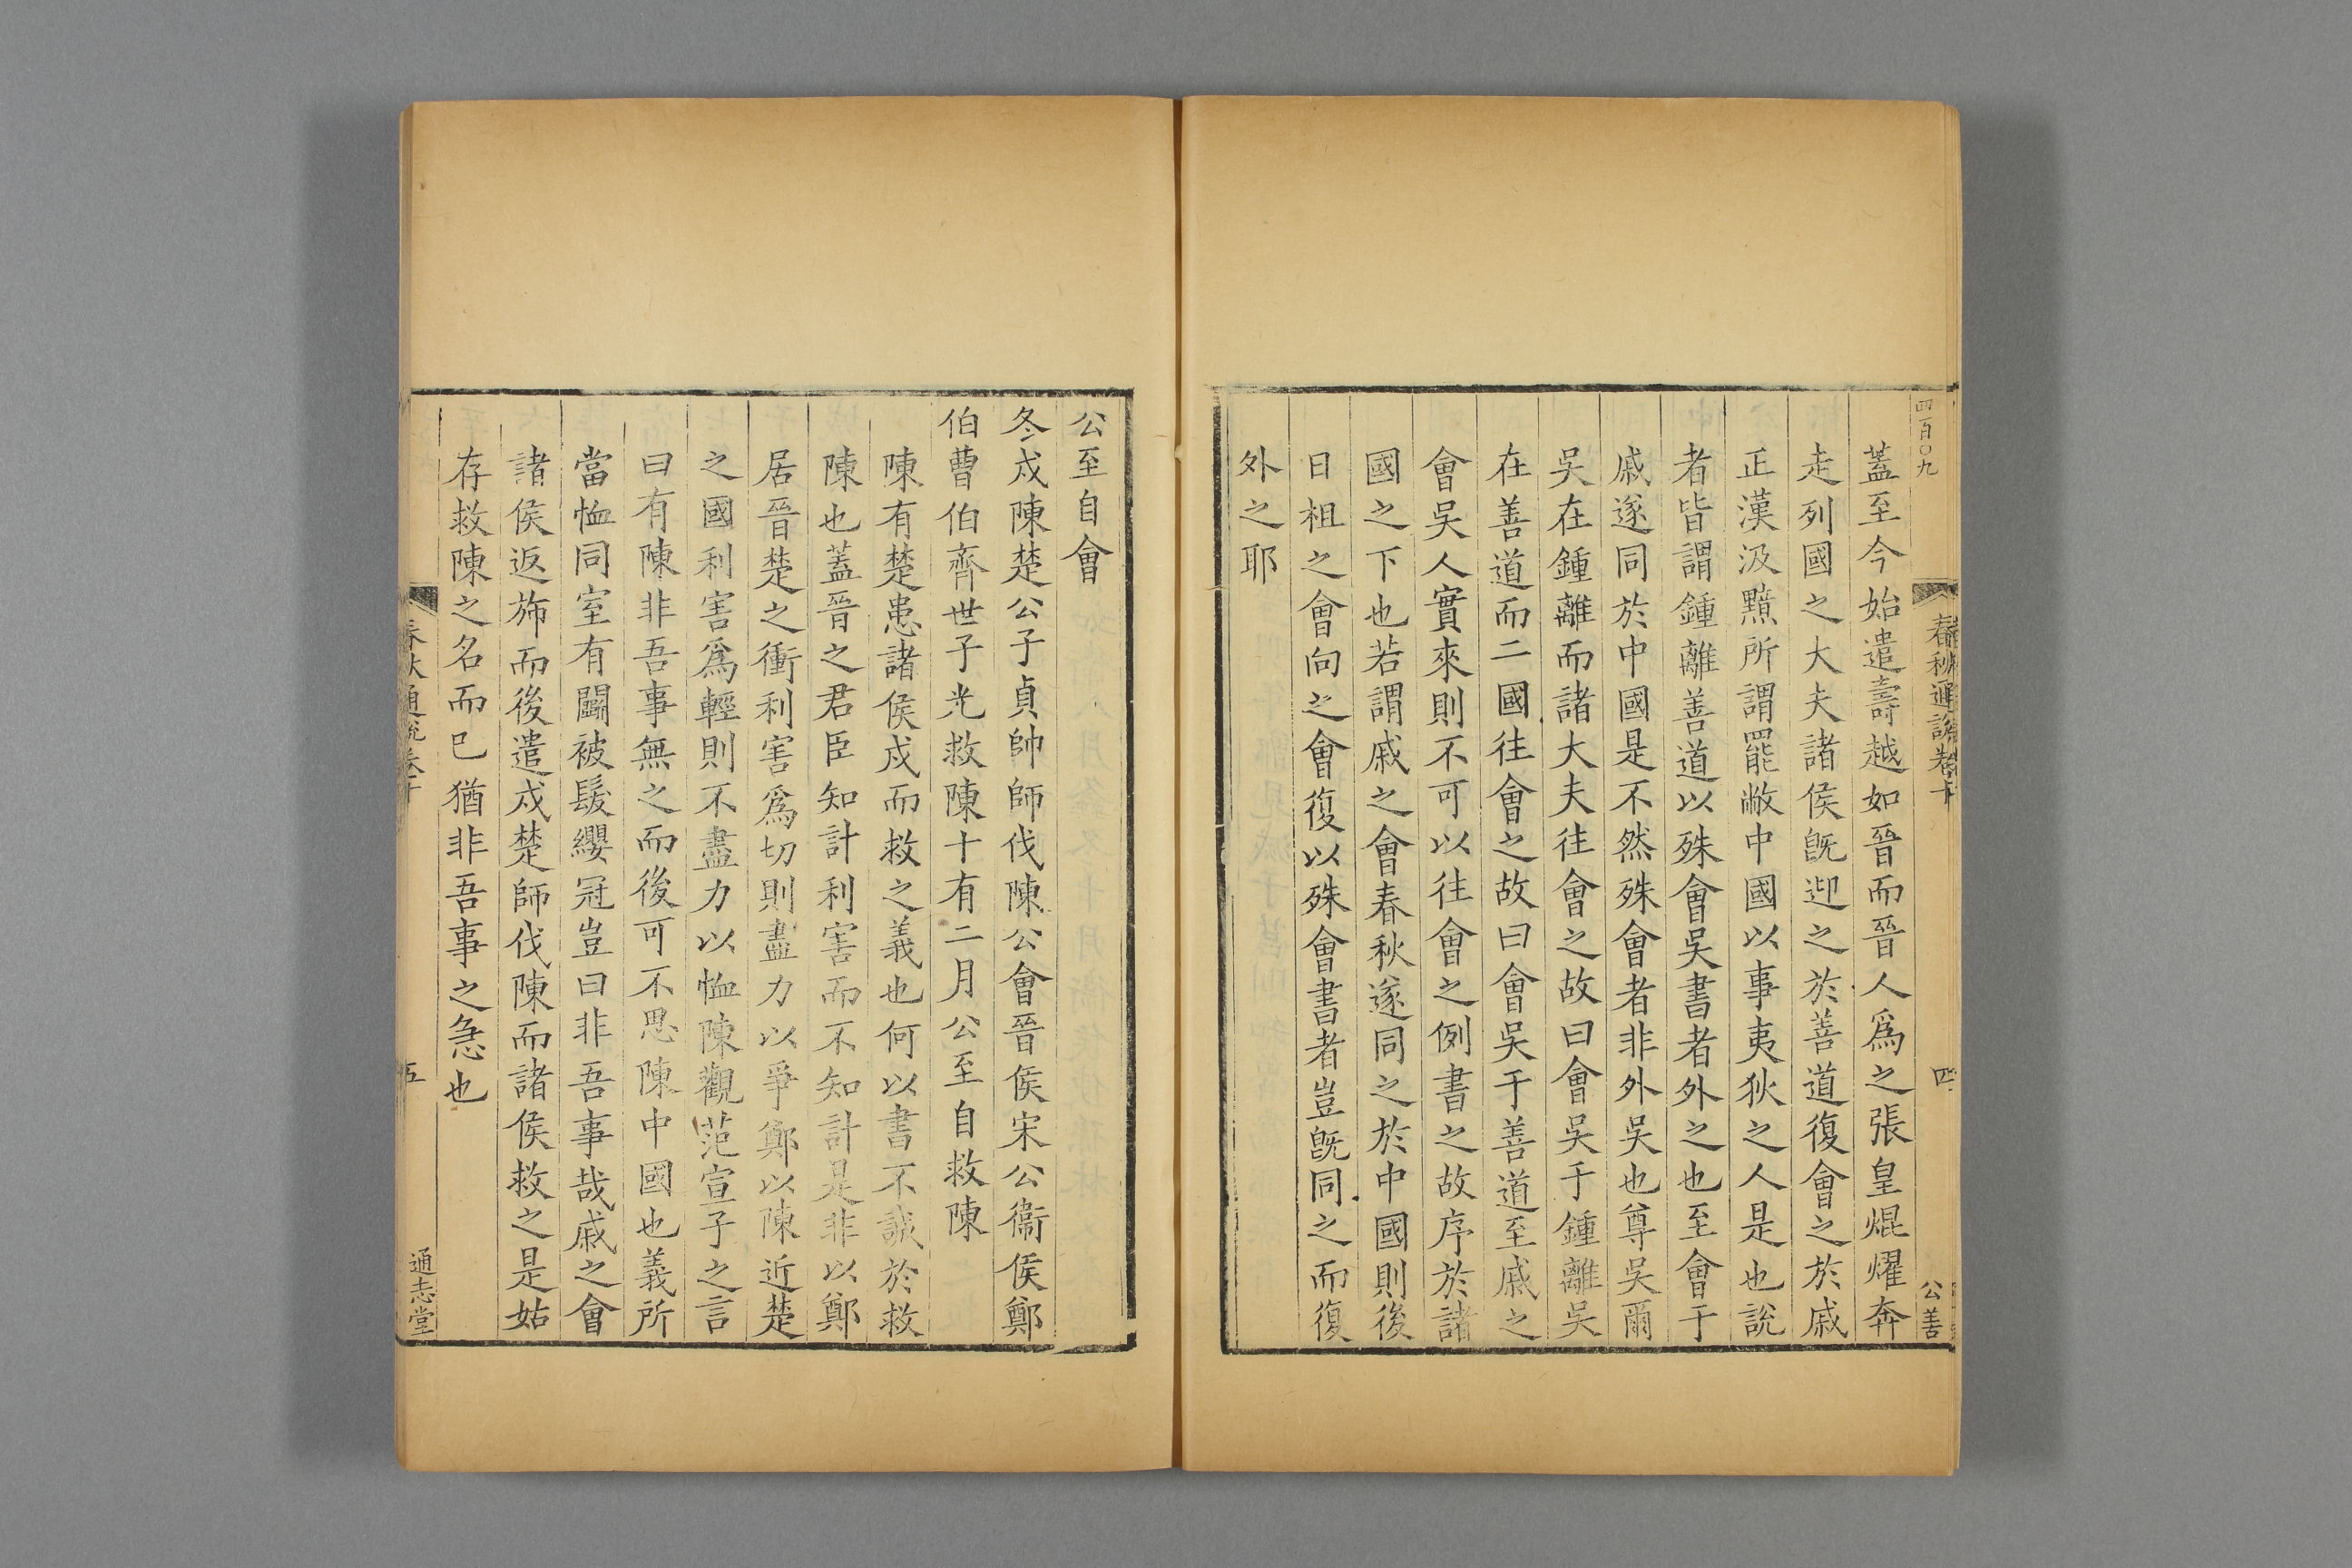 四百〇九
春秋通說卷十
四
公善
蓋至今始遣壽越如晉而晉人爲之張皇焜燿奔
走列國之大夫諸侯旣迎之於善道復會之於戚
正漢汲黯所謂罷敝中國以事夷狄之人是也說
者皆謂鍾離善道以殊會吳書者外之也至會于
戚遂同於中國是不然殊會者非外吳也尊吳爾
吳在鍾離而諸大夫往會之故曰會吳于鍾離吳
在善道而二國往會之故曰會吳于善道至戚之
會吳人實來則不可以往會之例書之故序於諸
國之下也若謂戚之會春秋遂同之於中國則後
日柤之會向之會復以殊會書者豈旣同之而復
外之耶
公至自會
冬戍陳楚公子貞帥師伐陳公會晉侯宋公衞侯鄭
伯曹伯齊世子光救陳十有二月公至自救陳
陳有楚患諸侯戍而救之義也何以書不誠於救
陳也蓋晉之君臣知計利害而不知計是非以鄭
居晉楚之衝利害爲切則盡力以爭鄭以陳近楚
之國利害爲輕則不盡力以恤陳觀范宣子之言
曰有陳非吾事無之而後可不思陳中國也義所
當恤同室有鬭被髮纓冠豈曰非吾事哉戚之會
諸侯返旆而後遣戍楚師伐陳而諸侯救之是姑
存救陳之名而已猶非吾事之急也
春秋通說卷十
五
通志堂